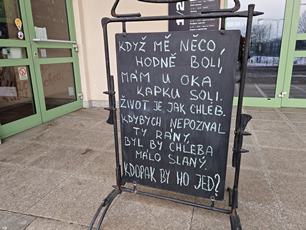 KDYŽ MĚ NĚCO,
HODNĚ BOLÍ,
MÁM U OKA
KAPKU SOLI.
ŽIVOT JE JAK CHLEB.
KDYBYCH NEPOZNAL
TY RÁNY,
BYL BY CHLEBA
MÁLO SLANÝ.
KDOPAK BY HO JEDL?